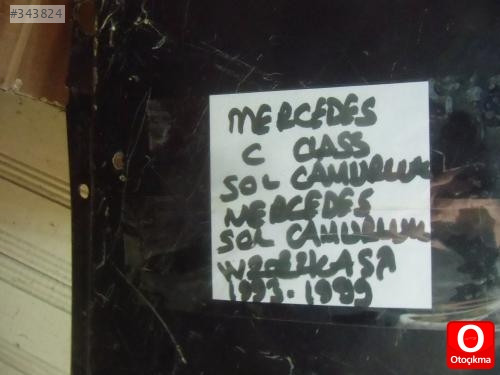 #343824
MERCEDES
C CLASS
SOL ÇAMURLUK
MERCEDES
SOL ÇAMURLUK
W202KASA
1993-1999
O
Otoçıkma